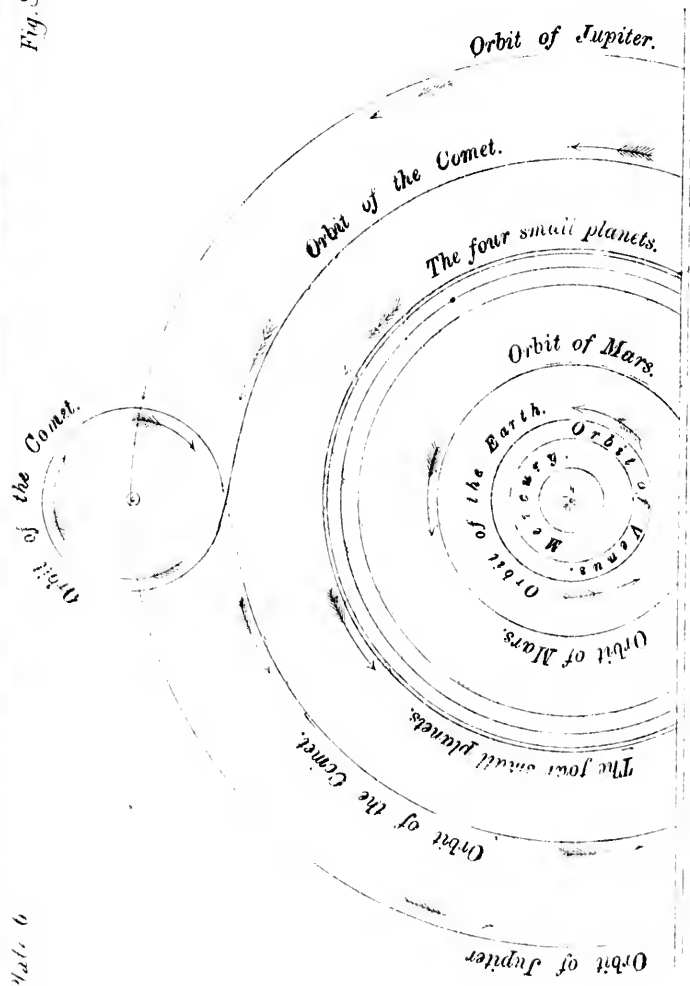 Fig.
Orbit of Jupiter.
Orbit of the Comet.
The four small planets.
Orbit of Mars.
Orbit of the Comet.
Orbit of the Earth.
Orbit of Venus.
Mercury.
Orbit of Mars.
The four small planets.
Orbit of the Comet.
Orbit of Jupiter
Plate 6